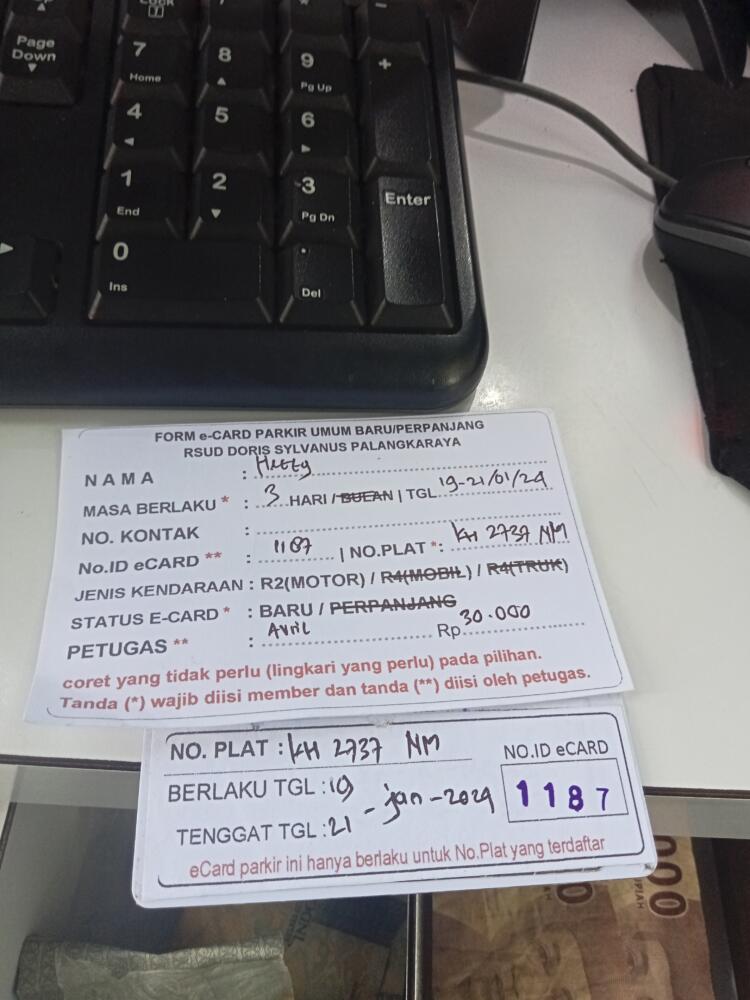 Page
Down
7
Home
8
9
Pg Up
-
+
4
5
6
1
End
2
3
Pg Dn
Enter
0
Ins
.
Del
FORM e-CARD PARKIR UMUM BARU/PERPANJANG
RSUD DORIS SYLVANUS PALANGKARAYA
NAMA : Hetty
MASA BERLAKU * : 3 HARI / BULAN | TGL 19-21/01/24
NO. KONTAK :
No.ID eCARD ** : 1187 | NO.PLAT *: KH 2737 NM
JENIS KENDARAAN : R2(MOTOR) / R4(MOBIL) / R4(TRUK)
STATUS E-CARD * : BARU / PERPANJANG
PETUGAS ** : Avril Rp 30.000
coret yang tidak perlu (lingkari yang perlu) pada pilihan.
Tanda (*) wajib diisi member dan tanda (**) diisi oleh petugas.
NO. PLAT : KH 2737 NM
NO.ID eCARD
BERLAKU TGL : 19 - jan - 2024
1187
TENGGAT TGL : 21
eCard parkir ini hanya berlaku untuk No.Plat yang terdaftar
000